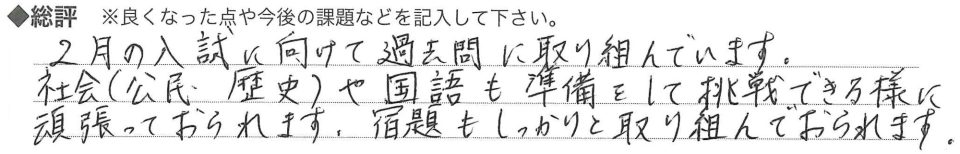 ◆総評 ※良くなった点や今後の課題などを記入して下さい。
2月の入試に向けて過去問に取り組んでいます。
社会(公民・歴史)や国語も準備をして挑戦できる様に
頑張っておられます。宿題もしっかりと取り組んでおられます。